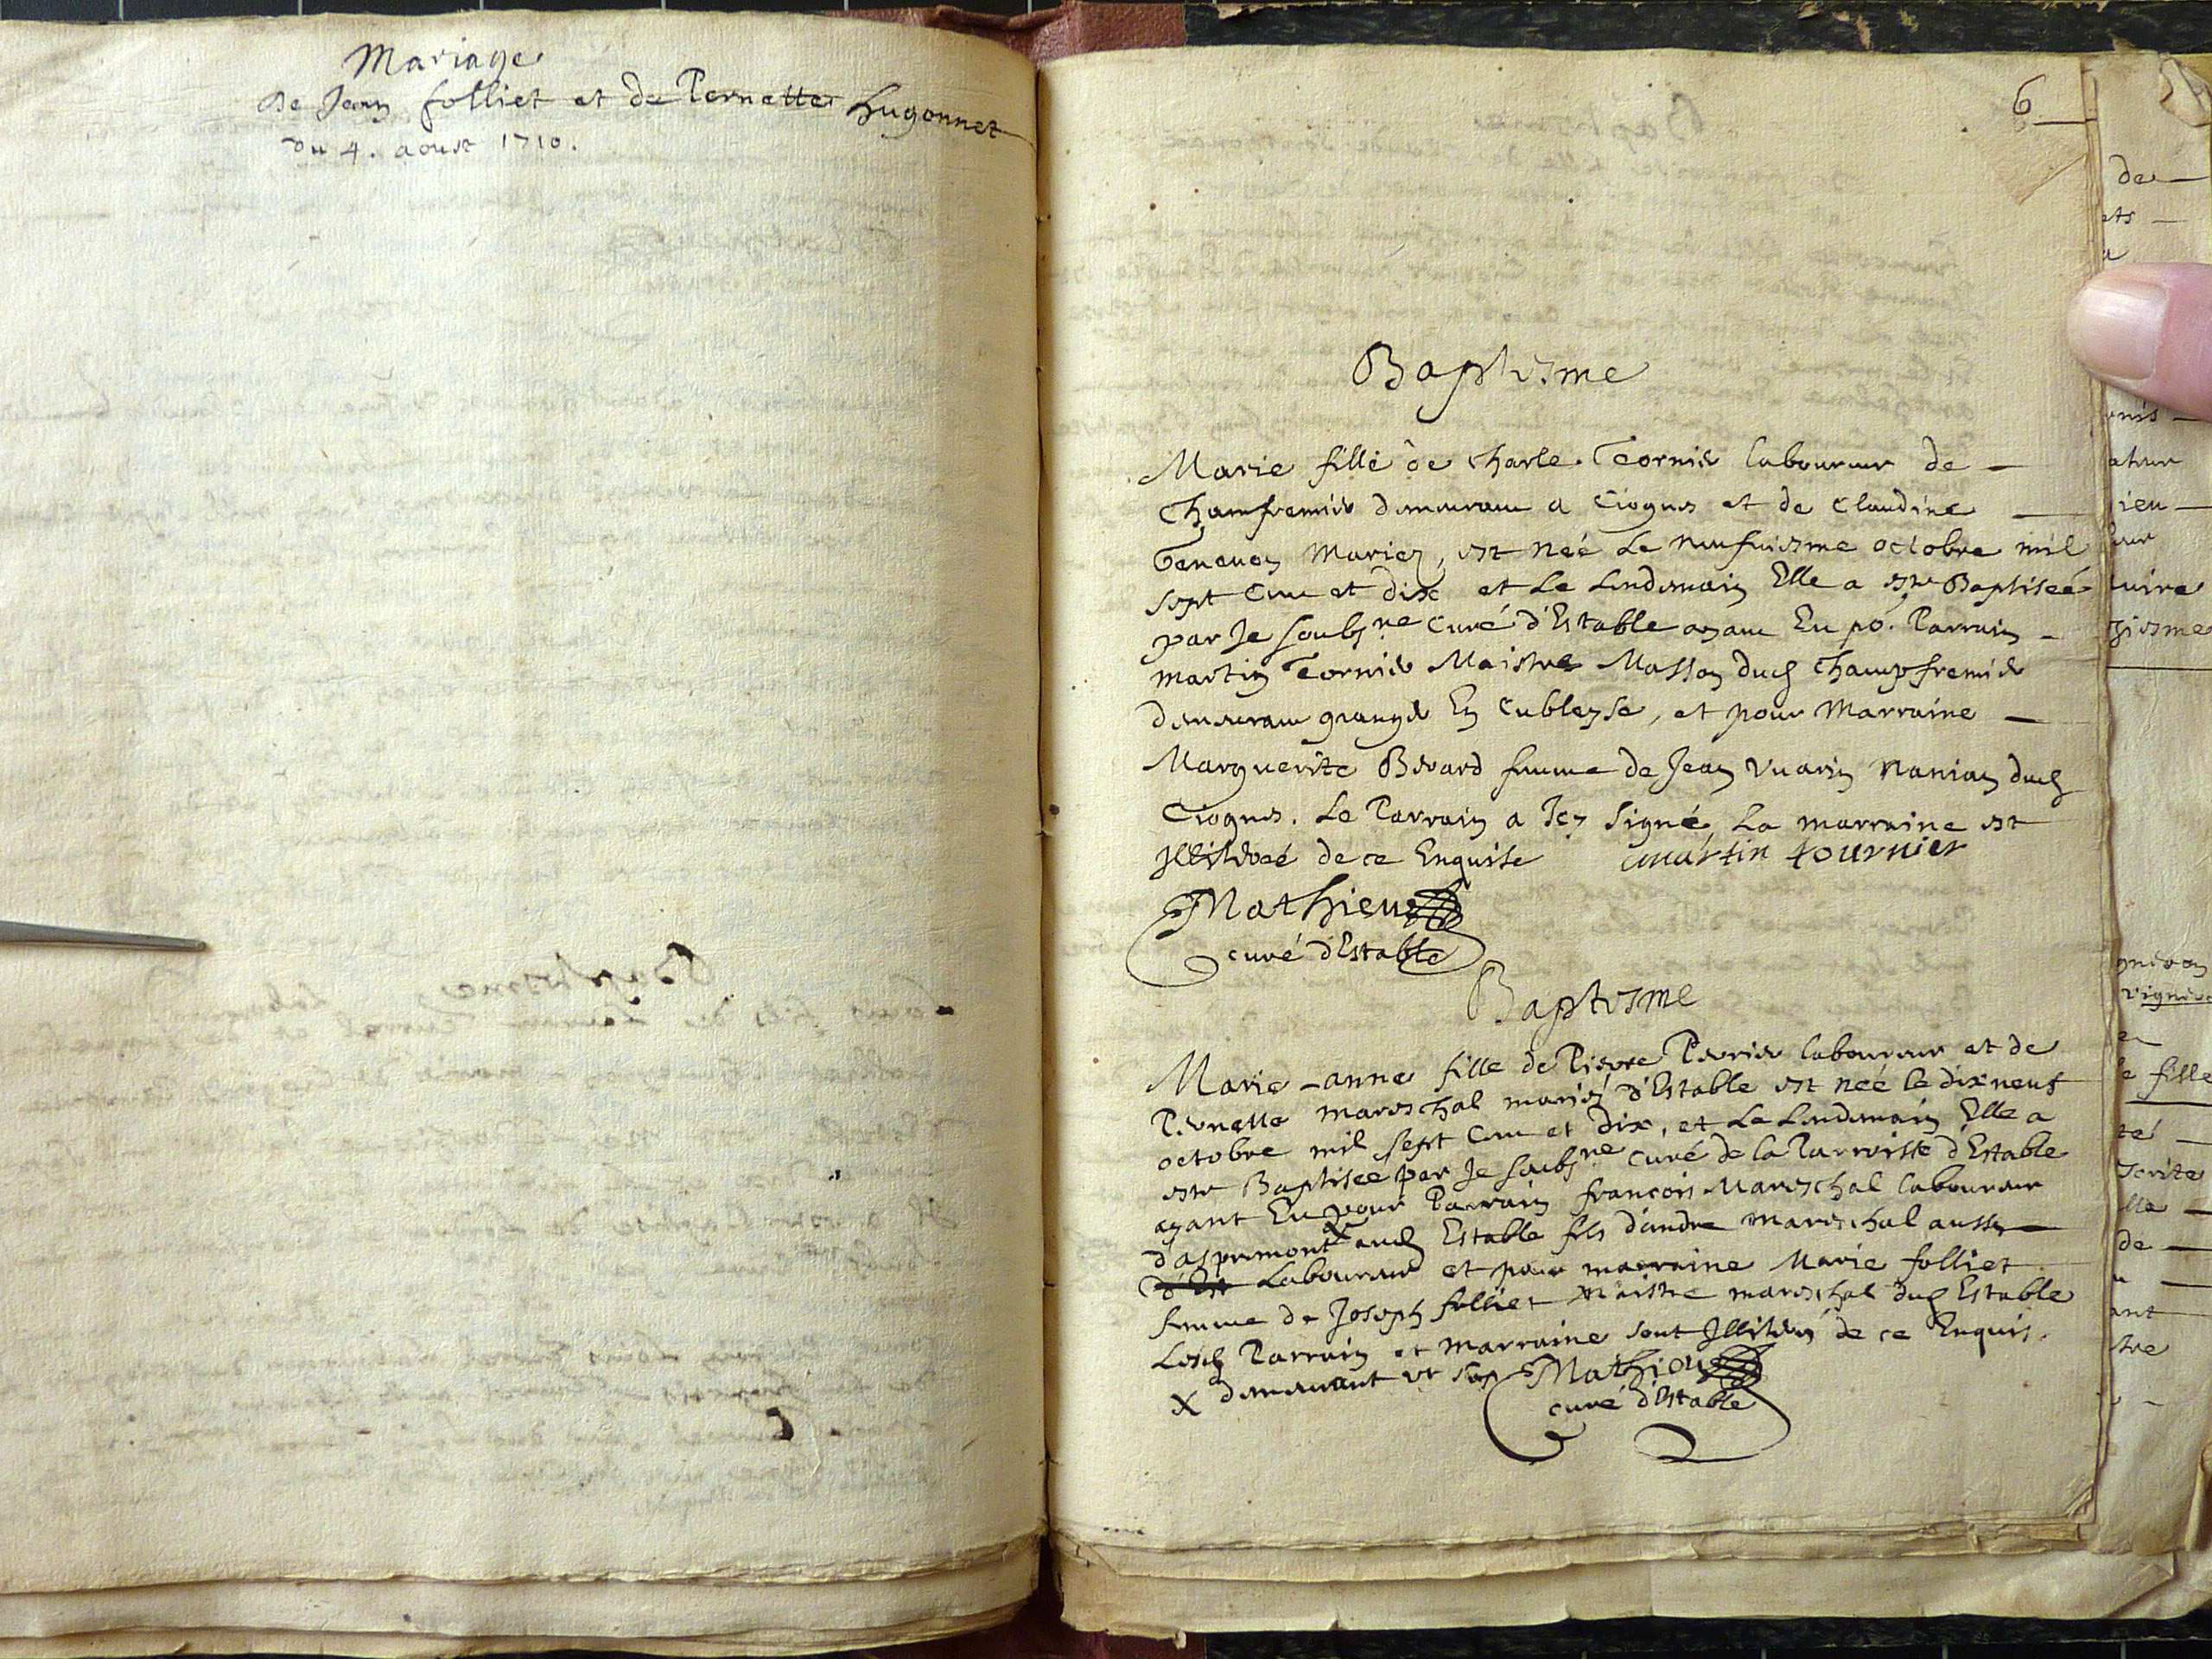 Mariage
De Jean folliet et de Pernette hugonnet
Du 4. aoust 1710.
6
Baptesme
Marie fille de charle Tornier laboureur de
Champfremier demeurant a Ciognes et de Claudine
mariez, est neé Le neufuiesme octobre mil
sept Cent et dix et Le Lendemain Elle a este Baptiseé
par Je soubsne Curé d'Estable ayant Eu po. Parrain
martin Tornier Maistre Masson dud Champfremier
demeurant granger En Cubleyse, et pour Marraine
Marguerite Berard femme de Jean vuarin dud
Ciognes. Le Parrain a Icy signé, La marraine est
Illiteree de ce Enquise martin tournier
Mathieu
curé d'Estable
Baptesme
Marie-anne fille de Pierre Perrier laboureur et de
Pernette mareschal mariez d'Estable est neé le dixneuf
octobre mil sept Cent et dix, et Le Lendemain Elle a
este Baptisee par Je soubsne Curé de la Parroisse d'Estable
ayant Eu pour Parrain francois Mareschal laboureur
d'aspremont X aud Estable fils d'andre mareschal aussy
d'Est Laboureur et pour marraine Marie folliet
femme de Joseph folliet Maistre mareschal dud Estable
Lesd Parrain et marraine sont Illiterez de ce Enquis.
X demeurant vt sup Mathieu
curé d'Estable
de
ets
a
ateur
ieu
eur
uire
iesme
vigner
e fille
té
scrite
lle
de
ant
stre